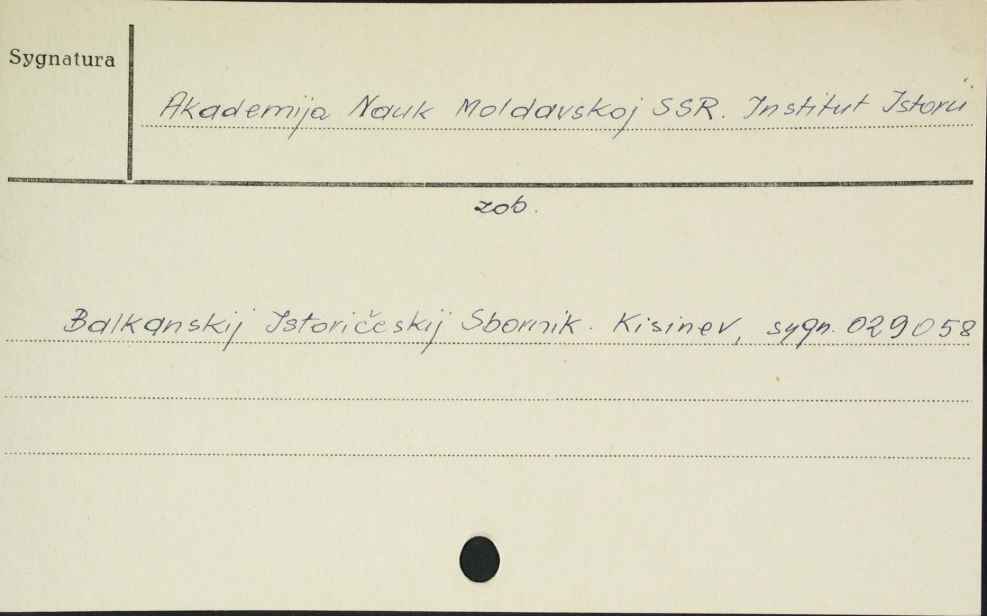 Sygnatura
Akademija Nauk Moldavskoj SSR. Institut Istorii
zob.
Balkanskij Istoričeskij Sbornik. Kisinev, sygn. 029058